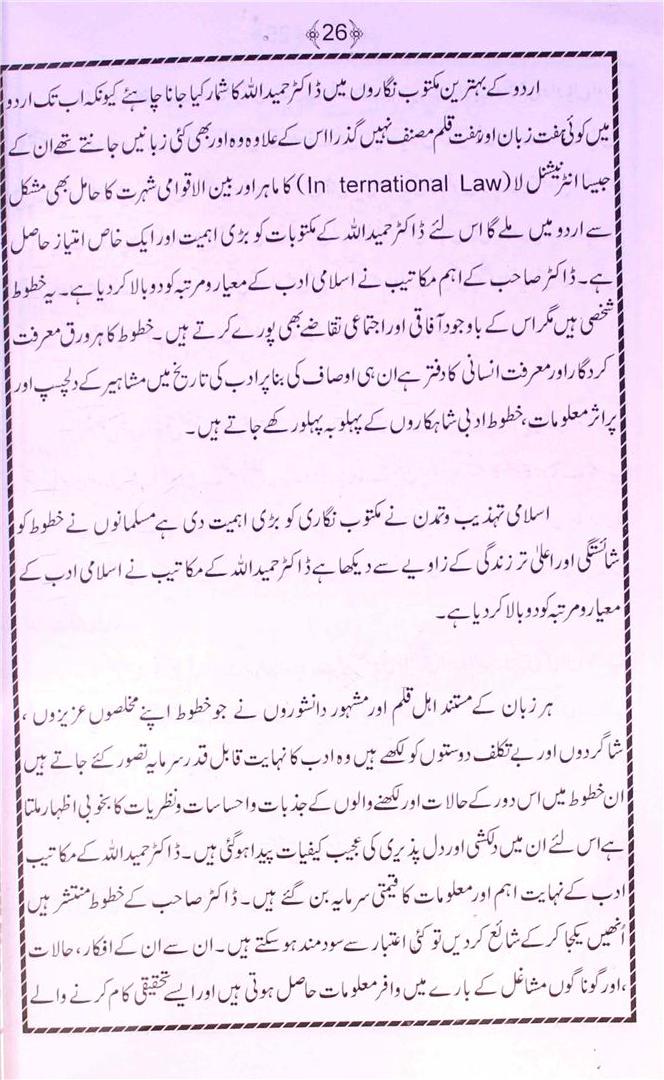 26
اردو کے بہترین مکتوب نگاروں میں ڈاکٹر حمید اللہ کا شمار کیا جانا چاہئے کیونکہ اب تک اردو
میں کوئی ہفت زبان اور ہفت قلم مصنف نہیں گذرا اس کے علاوہ وہ اور بھی کئی زبانیں جانتے تھے ان کے
جیسا انٹرنیشنل لا (In ternational Law) کا ماہر اور بین الاقوامی شہرت کا حامل بھی مشکل
سے اردو میں ملے گا اس لئے ڈاکٹر حمید اللہ کے مکتوبات کو بڑی اہمیت اور ایک خاص امتیاز حاصل
ہے۔ ڈاکٹر صاحب کے اہم مکاتیب نے اسلامی ادب کے معیار و مرتبہ کو دوبالا کر دیا ہے۔ یہ خطوط
شخصی ہیں مگر اس کے باوجود آفاتی اور اجتماعی تقاضے بھی پورے کرتے ہیں۔ خطوط کا ہر ورق معرفت
کردگار اور معرفت انسانی کا دفتر ہے ان ہی اوصاف کی بنا پر ادب کی تاریخ میں مشاہیر کے دلچسپ اور
پراثر معلومات، خطوط ادبی شاہکاروں کے پہلو بہ پہلو رکھے جاتے ہیں۔
اسلامی تہذیب و تمدن نے مکتوب نگاری کو بڑی اہمیت دی ہے مسلمانوں نے خطوط کو
شائستگی اور اعلیٰ تر زندگی کے زاویے سے دیکھا ہے ڈاکٹر حمید اللہ کے مکاتیب نے اسلامی ادب کے
معیار و مرتبہ کو دوبالا کر دیا ہے۔
ہر زبان کے مستند اہل قلم اور مشہور دانشوروں نے جو خطوط اپنے مخلصوں عزیزوں ،
شاگردوں اور بے تکلف دوستوں کو لکھے ہیں وہ ادب کا نہایت قابل قدر سرمایہ تصور کئے جاتے ہیں
ان خطوط میں اس دور کے حالات اور لکھنے والوں کے جذبات و احساسات و نظریات کا بخوبی اظہار ملتا
ہے اس لئے ان میں دلکشی اور دل پذیری کی عجیب کیفیات پیدا ہو گئی ہیں۔ ڈاکٹر حمید اللہ کے مکاتیب
ادب کے نہایت اہم اور معلومات کا قیمتی سرمایہ بن گئے ہیں۔ ڈاکٹر صاحب کے خطوط منتشر ہیں
اُنھیں یکجا کر کے شائع کر دیں تو کئی اعتبار سے سودمند ہو سکتے ہیں۔ ان سے ان کے افکار، حالات
،اور گوناگوں مشاغل کے بارے میں وافر معلومات حاصل ہوتی ہیں اور ایسے تحقیقی کام کرنے والے